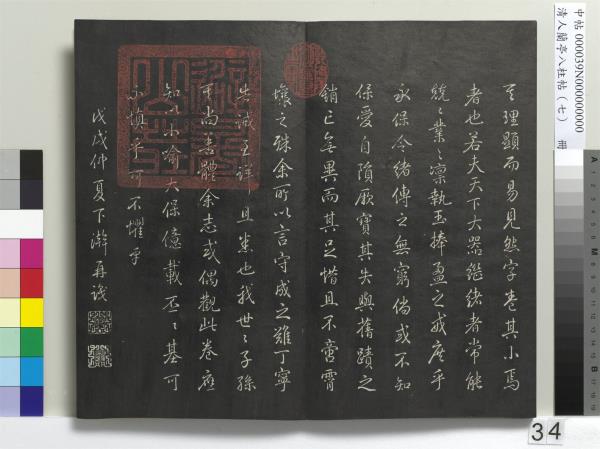 至理顯而易見然字卷其小焉
者也若夫天下大器繼緒者常能
兢〻業〻凜執玉捧盈之戒庶乎
永保令緒傳之無窮倘或不知
保愛自隳厥寶其失與舊蹟之
銷亡無異而其足惜且不啻霄
壤之殊余所以言守成之難丁寧
告誡至詳且悉也我世〻子孫
可尚善體余志或偶觀此卷應
知〻小喻大保億載丕〻基可
不慎乎可不懼乎
戊戌仲夏下澣再識
中帖 000039N000000000
清人蘭亭八柱帖(七) 冊
34